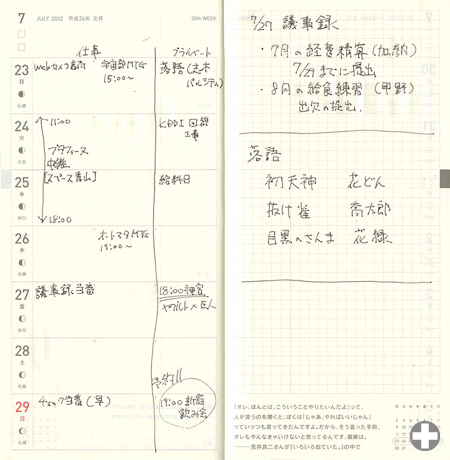 7
JULY 2012 平成24年 文月
30th WEEK
仕事
プライベート
23
月
webカメラ
15:00〜
落語(志木
パルシティ)
24
火
11:00
KDDI 回線
工事
中継
25
水
[スペース青山]
18:00
給料日
26
木
15:00〜
27
金
議事録当番
18:00 神宮
ヤクルト×巨人
28
土
予約!!
29
日
チェック当番(早)
19:00 新宿
飲み会
7/27 議事録
・7月の経費精算(加納)
7/27までに提出
・8月の給食練習(甲野)
出欠の提出.
落語
初天神 花どん
抜け雀 喬太郎
目黒のさんま 花緑
「オレ、ほんとは、こういうことやりたいんだよ」って、
人が言うのを聞くと、ぼくは「じゃあ、やればいいじゃん」
っていっつも言ってきたんですよ。だから、そう言った手前、
オレもやんなきゃいけないと思ってるんです、個展は。
——荒井良二さんが『いろいろ似ていた』の中で